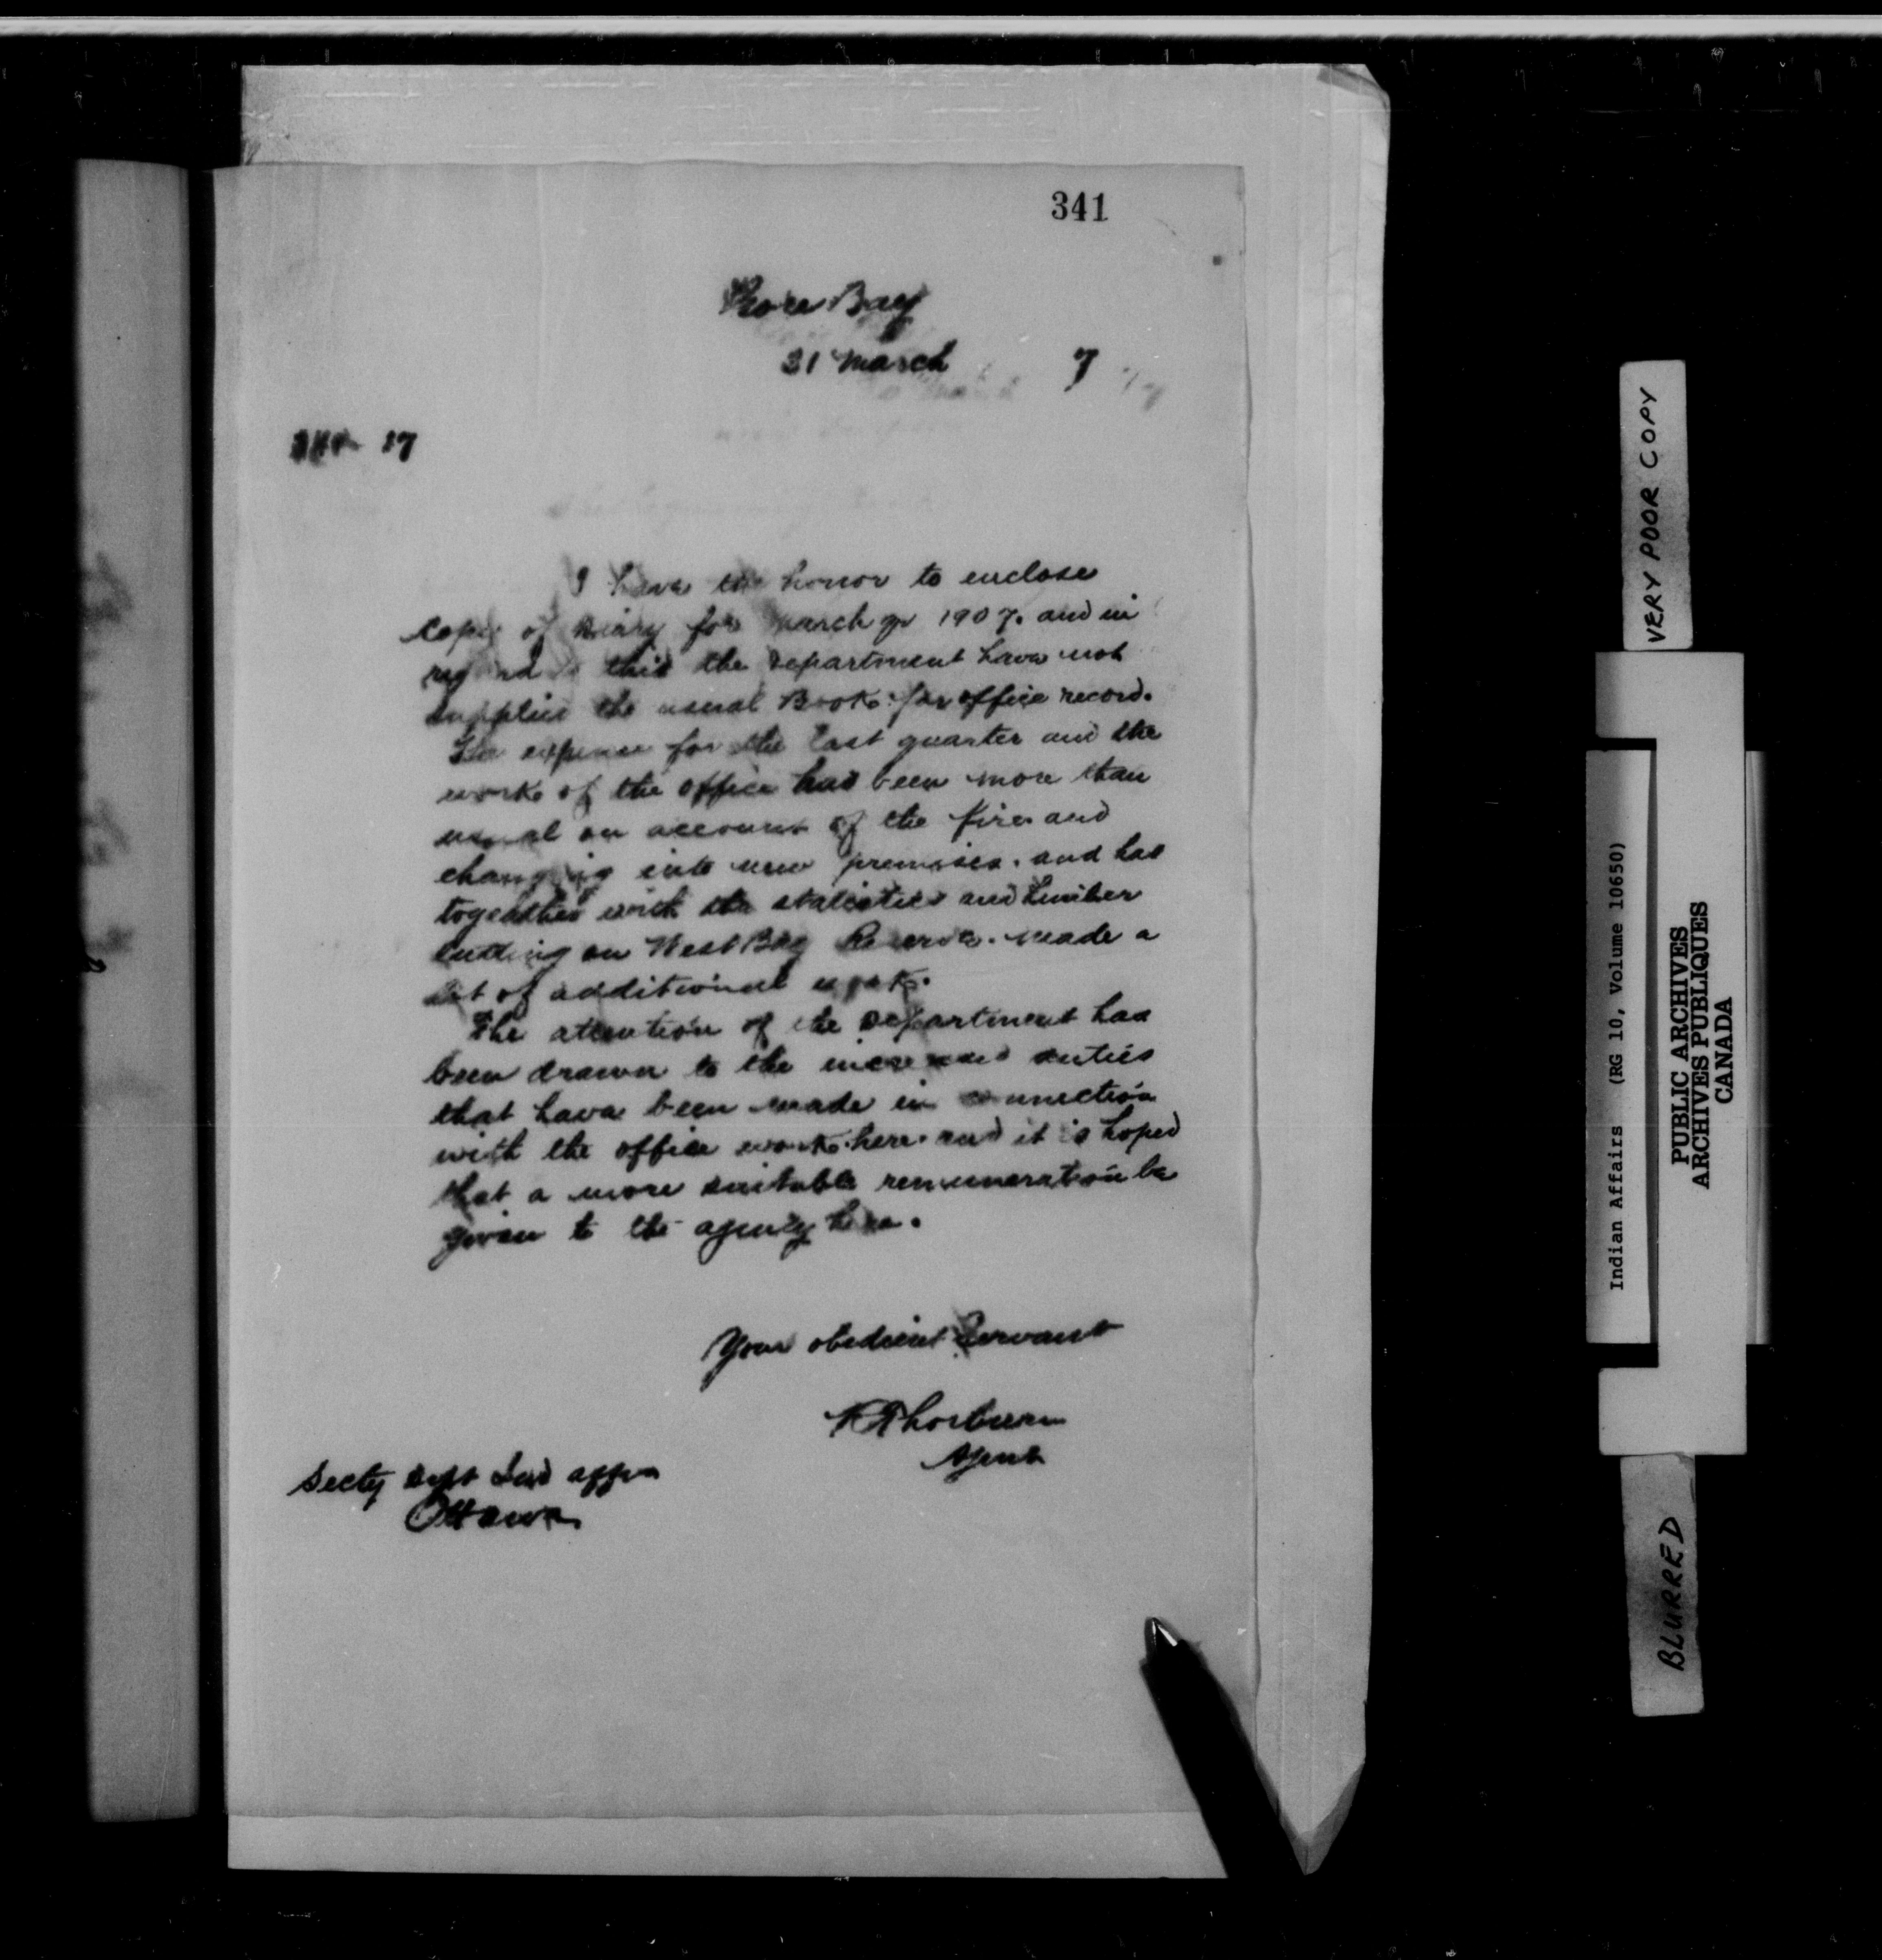 341
Gore Bay
31 March 7
17
I have the honor to enclose
Copy of Diary for March qr 1907. and in
regard to this the Department have not
supplied the usual Book for office record.
The expense for the last quarter and the
work of the office has been more than
usual on account of the fire and
changing into new premises. and has
together with the statistics and Timber
cutting on West Bay Reserve. made a
lot of additional work.
The attention of the Department has
been drawn to the increased duties
that have been made in connection
with the office work here. and it is hoped
that a more suitable remuneration be
given to the agency here.
Your obedient Servant
R Thorburn
Agent
Secty Dept Ind affrs
Ottawa
VERY POOR COPY
Indian Affairs (RG 10, Volume 10650)
PUBLIC ARCHIVES
ARCHIVES PUBLIQUES
CANADA
BLURRED